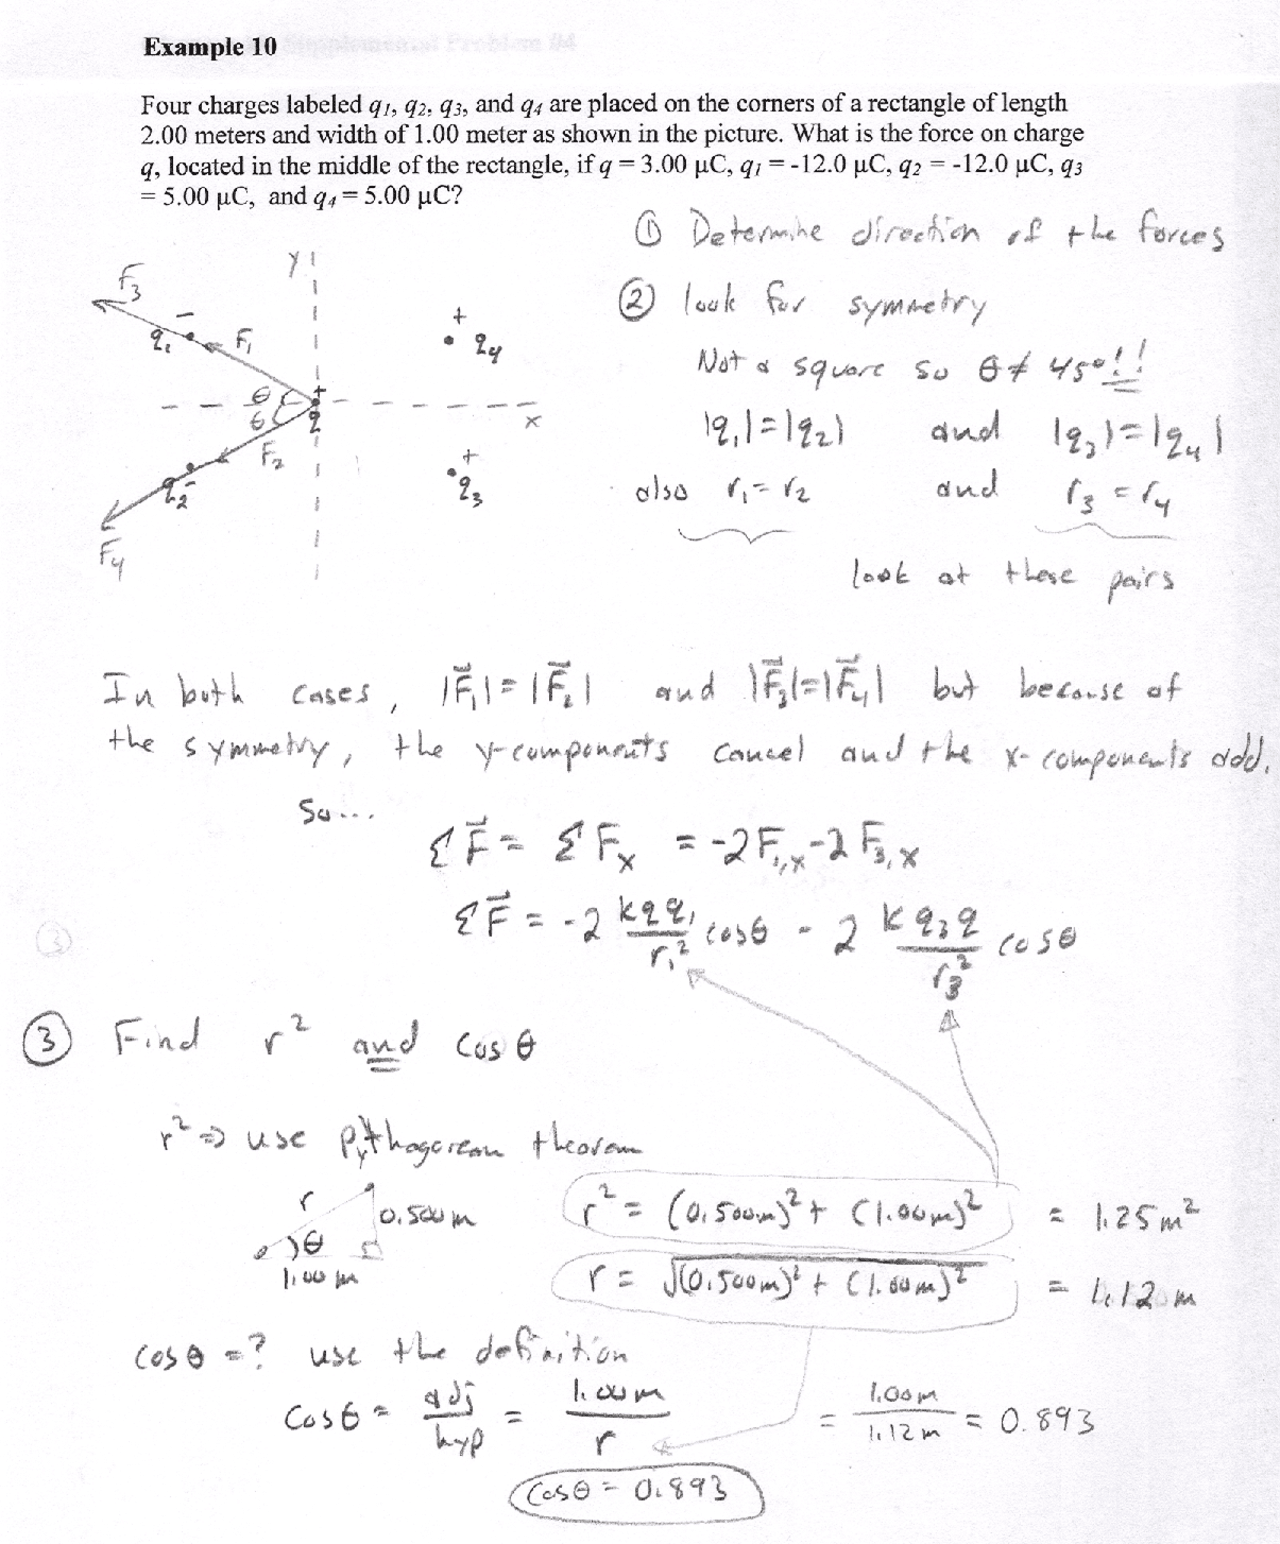 Example 10
Four charges labeled q1, q2, q3, and q4 are placed on the corners of a rectangle of length
2.00 meters and width of 1.00 meter as shown in the picture. What is the force on charge
q, located in the middle of the rectangle, if q = 3.00 µC, q1 = -12.0 µC, q2 = -12.0 µC, q3
= 5.00 µC, and q4 = 5.00 µC?
① Determine direction of the forces
② look for symmetry
Not a square so θ ≠ 45°!!
|q1| = |q2| and |q3| = |q4|
also r1 = r2 and r3 = r4
look at these pairs
F3
y
q1
F1
+
q4
θ
+
θ
q
x
F2
q2
+
q3
F4
In both cases, |F⃗1| = |F⃗2| and |F⃗3| = |F⃗4| but because of
the symmetry, the y-components cancel and the x-components add.
So...
ΣF⃗ = ΣFx = -2F1,x - 2F3,x
ΣF⃗ = -2 kqq1/r1² cosθ - 2 kq3q/r3² cosθ
③ Find r² and cosθ
r² ⇒ use pythagorean theorem
r
0.500 m
θ
1.00 m
r² = (0.500m)² + (1.00m)² = 1.25 m²
r = √(0.500m)² + (1.00m)² = 1.12 m
cosθ = ? use the definition
cosθ = adj/hyp = 1.00m/r = 1.00m/1.12m = 0.893
cosθ = 0.893